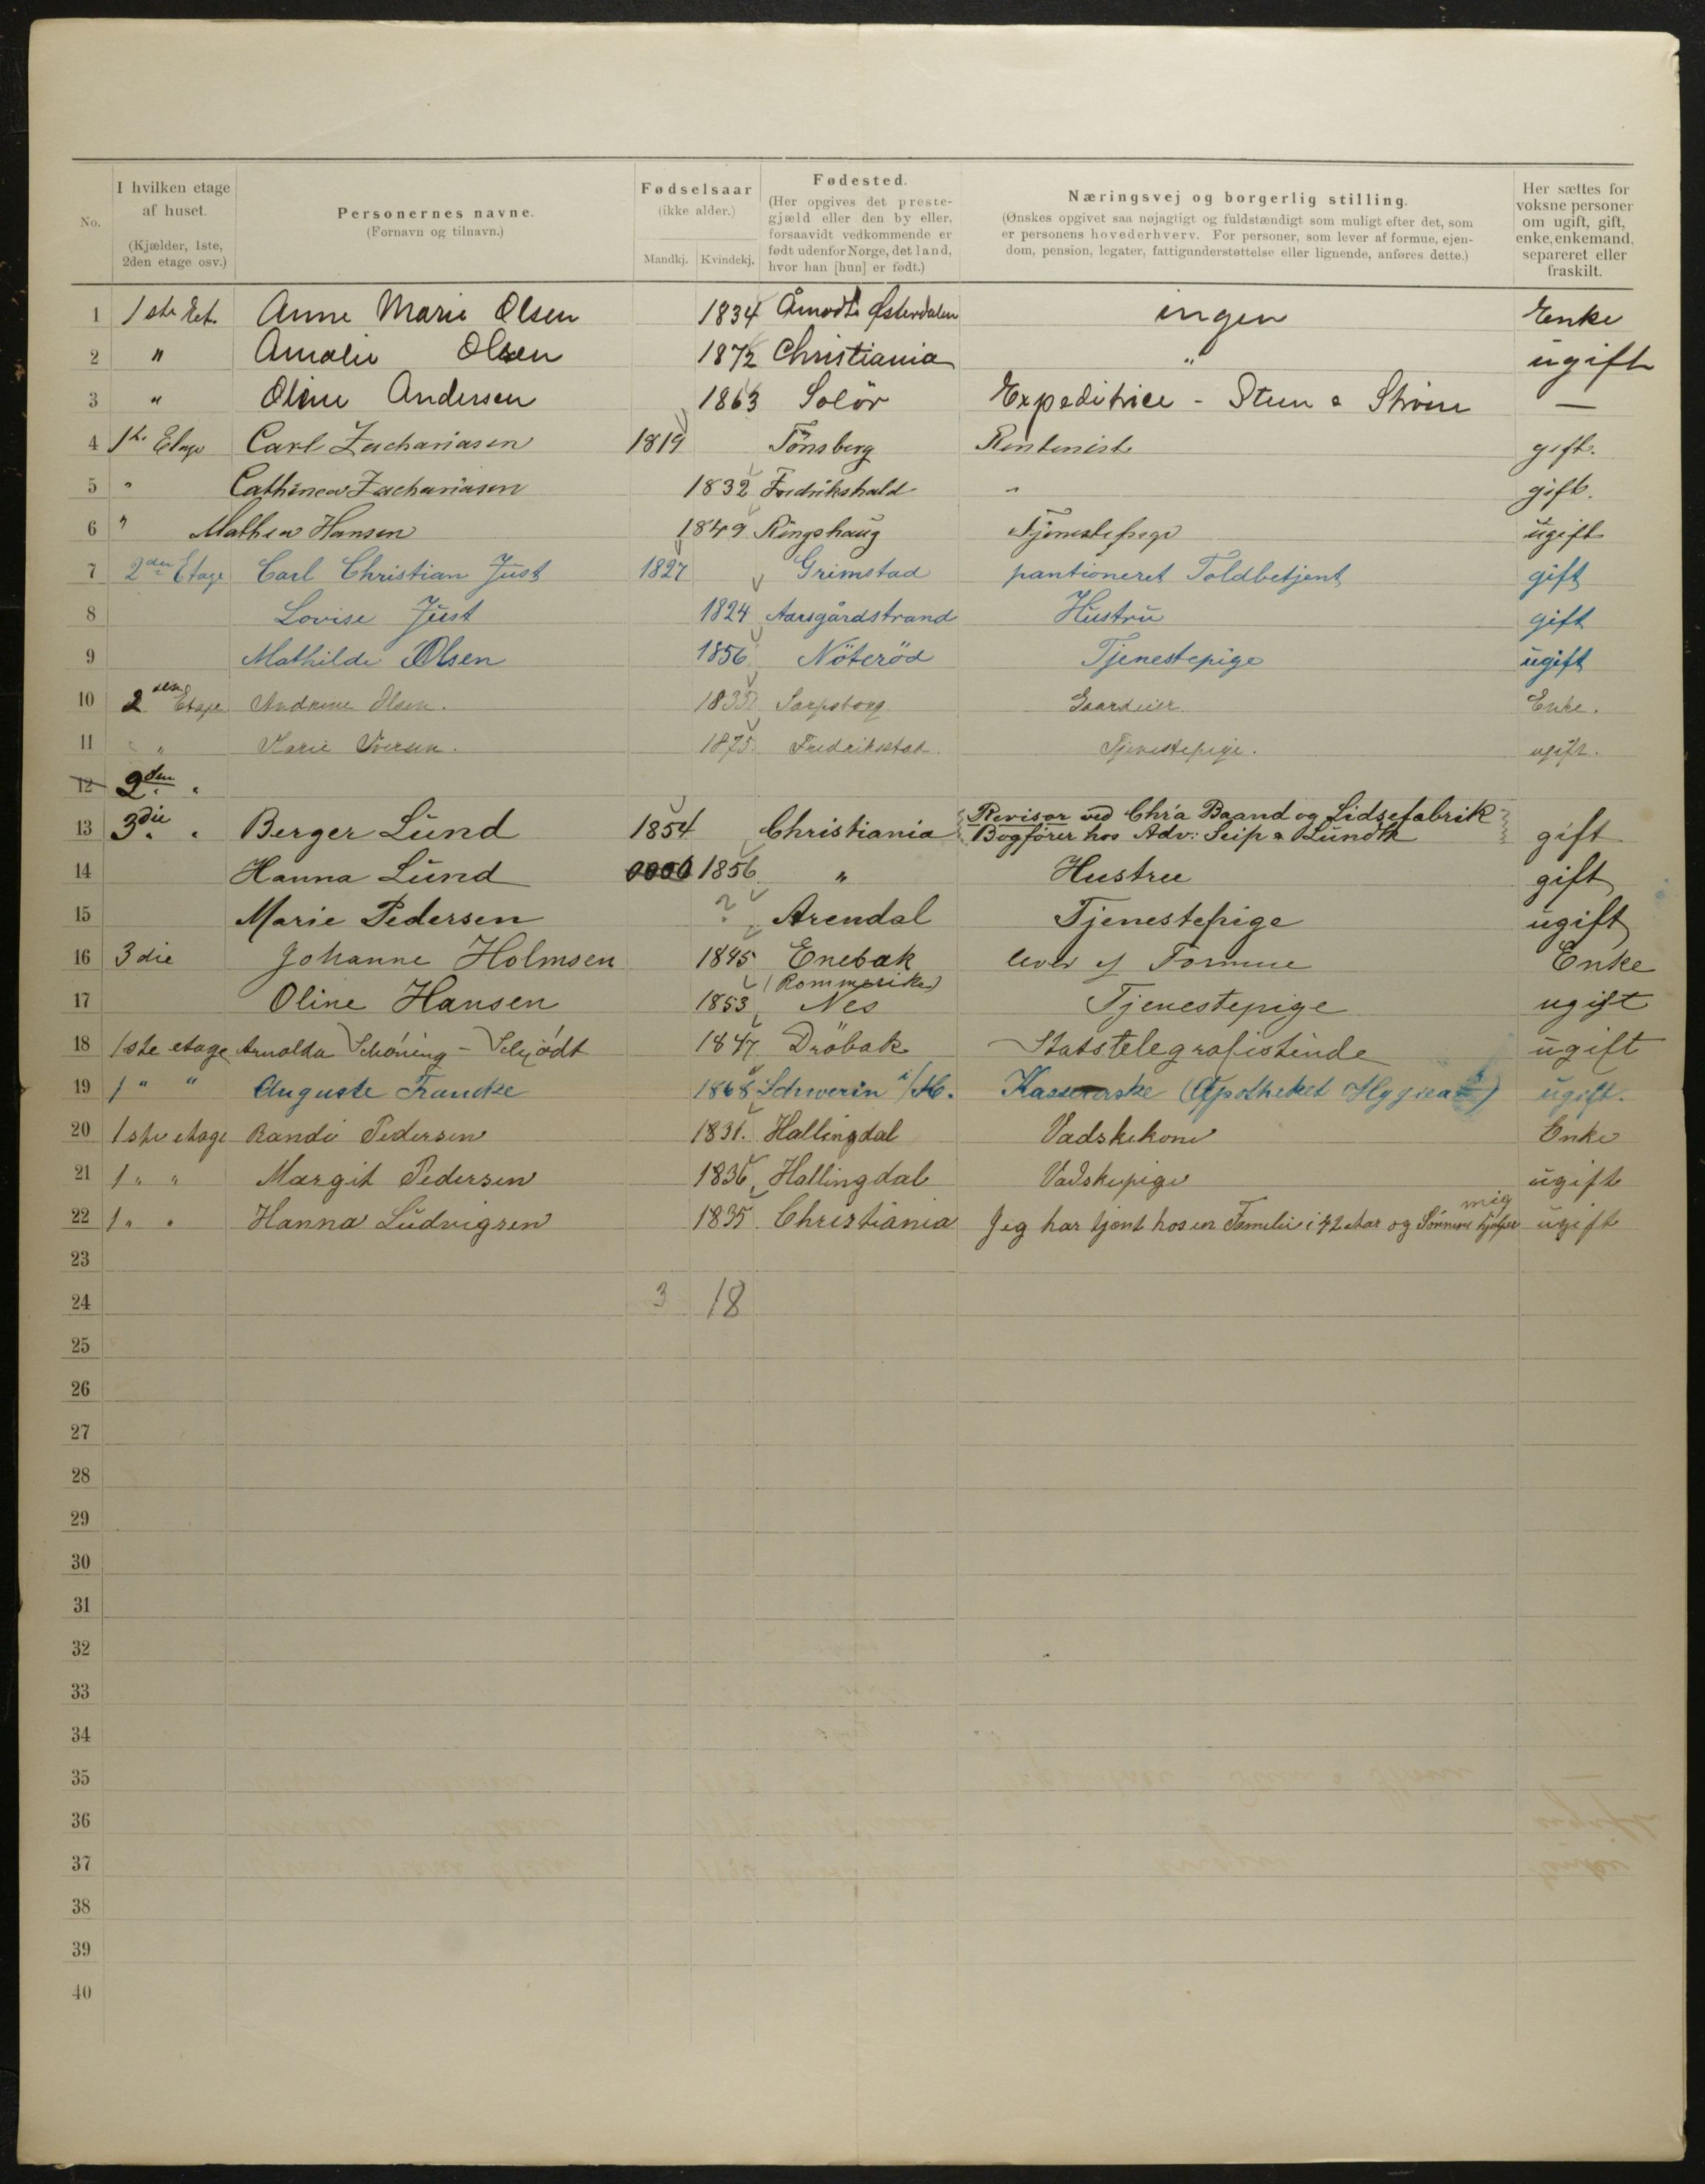 No.
I hvilken etage af huset.
(Kjælder, 1ste, 2den etage osv.)
Personernes navne.
(Fornavn og tilnavn.)
Fødselsaar
(ikke alder.)
Mandkj. Kvindekj.
Fødested.
(Her opgives det prestegjæld eller den by eller, forsaavidt vedkommende er født udenfor Norge, det land, hvor han [hun] er født.)
Næringsvej og borgerlig stilling.
(Ønskes opgivet saa nøjagtigt og fuldstændigt som muligt efter det, som er personens hovederhverv. For personer, som lever af formue, ejendom, pension, legater, fattigunderstøttelse eller lignende, anføres dette.)
Her sættes for voksne personer om ugift, gift, enke, enkemand, separeret eller fraskilt.
1 1ste Et. Anne Marie Olsen 1834 Åmodt Østerdalen ingen Enke
2 " Amalie Olsen 1872 Christiania " ugift
3 " Oline Andersen 1863 Solör Expeditrice - Steen & Ström —
4 1ste Etage Carl Zachariasen 1819 Tönsberg Rentenist gift.
5 " Cathinca Zachariasen 1832 Fredrikshald " gift.
6 " Mathea Hansen 1849 Ringshaug Tjenestepige ugift
7 2den Etage Carl Christian Just 1827 Grimstad pantioneret Toldbetjent gift
8 Lovise Just 1824 Aarsgårdstrand Hustru gift
9 Mathilde Olsen 1856 Nöteröd Tjenestepige ugift
10 2den Etage Andrine Olsen. 1833 Sarpsborg Gaardeier Enke.
11 " " Marie Iversen. 1875 Fredriksstad. Tjenestepige. ugift.
12 2den "
13 3die " Berger Lund 1854 Christiania Revisor ved Chra Baand og Lidsefabrik
Bogfører hos Adv: Seip & Lundh gift
14 Hanna Lund 1856 " Hustru gift
15 Marie Pedersen ? Arendal Tjenestepige ugift
16 3die Johanne Holmsen 1845 Enebak lever af Formue Enke
(Rommerike)
17 Oline Hansen 1853 Nes Tjenestepige ugift
18 1ste etage Arnolda Schöning - Schjödt 1847 Dröbak Statstelegrafistinde ugift
19 1 " " Auguste Francke 1868 Schwerin i/M. Kassererske (Apotheket Hygiea) ugift.
20 1ste etage Randi Pedersen 1831. Hallingdal Vadskekone Enke
21 1 " " Margit Pedersen 1836 Hallingdal Vadskepige ugift
22 1 " " Hanna Ludvigsen 1835 Christiania Jeg har tjent hos en Familie i 42 Aar og Sönnene hjelper mig ugift
23
24 3 18
25
26
27
28
29
30
31
32
33
34
35
36
37
38
39
40